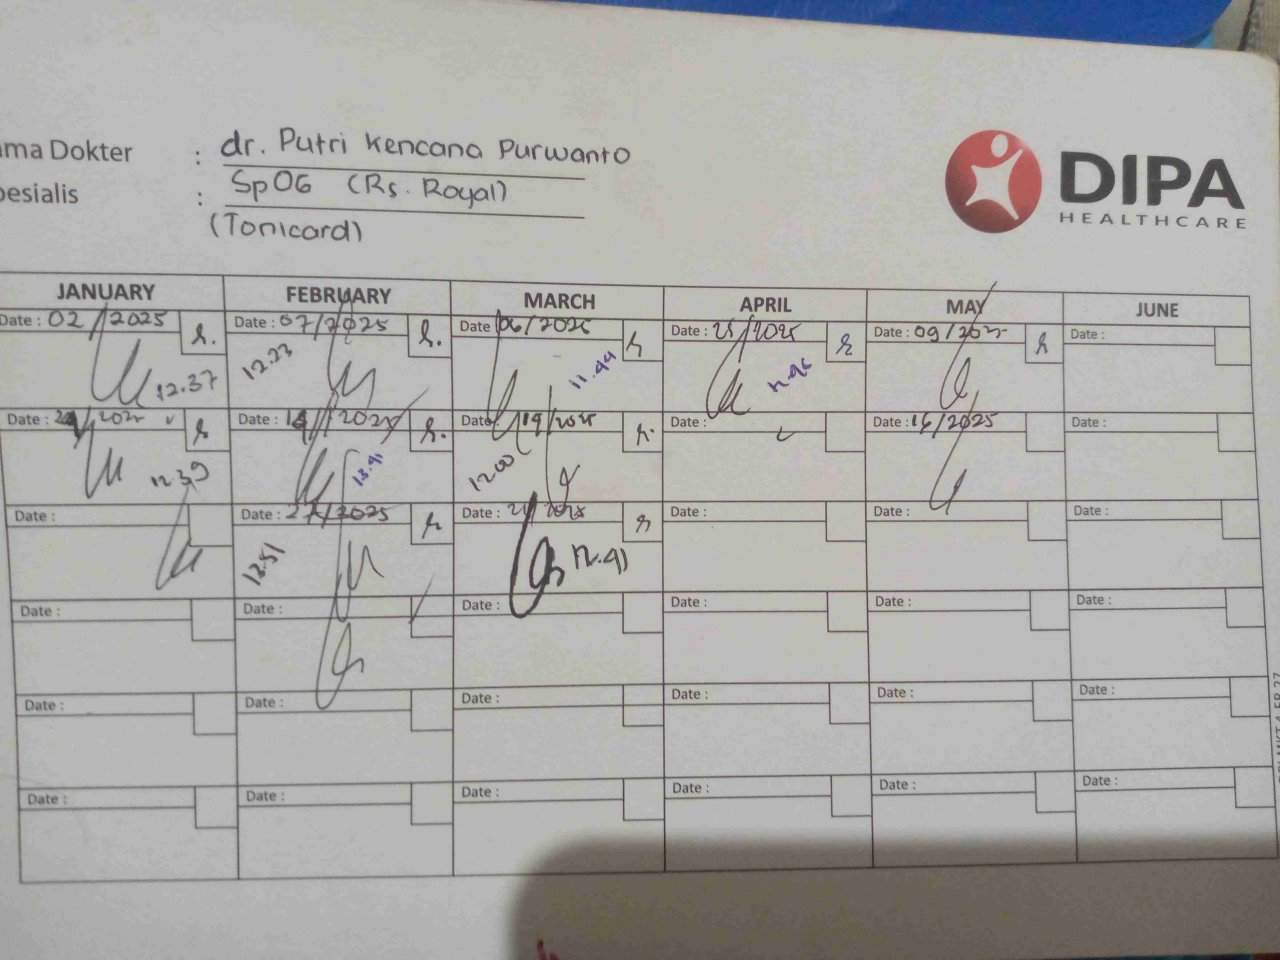 ama Dokter : dr. Putri Kencana Purwanto
pesialis : SpOG (Rs. Royal)
(Tonicard)
DIPA
HEALTHCARE
JANUARY FEBRUARY MARCH APRIL MAY JUNE
Date : 02/2025 Date : 07/2025 Date 06/2025 Date : /2025 Date : 09/2025 Date :
12.37 12.23 11.44
Date : /2025 Date : /2025 Date 19/2025 Date : Date : 16/2025 Date :
12.39 13.41 12.00
Date : Date : 27/2025 Date : 21/2025 Date : Date : Date :
13.51 12.41
Date : Date : Date : Date : Date : Date :
Date : Date : Date : Date : Date : Date :
Date : Date : Date : Date : Date : Date :